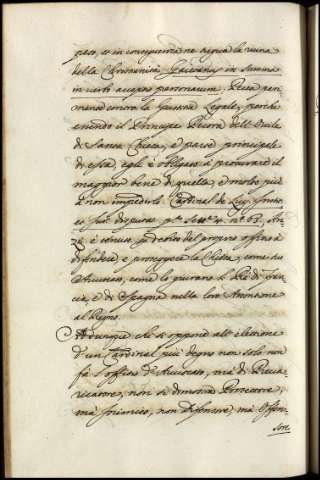 peso, et in consequenza ne segua la ruina
della Christianità, Gaietanus in summa
in verbo acceptio personarum. Pecca per-
mente contro la Giustitia Legale, perche
essendo il Principe Pecora dell'Ovile
di Santa Chiesa, è parte principale
di essa, egli è obligato à procurare il
maggior bene di quella, e molto più
à non impedirlo. Cardinal de Lugo
disputat. n.º 63.
è tenuto per debito del proprio offitio à
difendere, e proteggere la Chiesa, come suo
Avvocato, come lo giurano li Rè di Fran-
cia, e di Spagna nella loro Assuntione
al Regno.
Adunque chi s'oppone all'elettione
d'un Cardinal più degno non solo non
fà l'offitio d'Avvocato, mà di Preva-
ricatore, non si dimostra Protettore,
mà Inimico, non Difensore, mà Offen-
sore